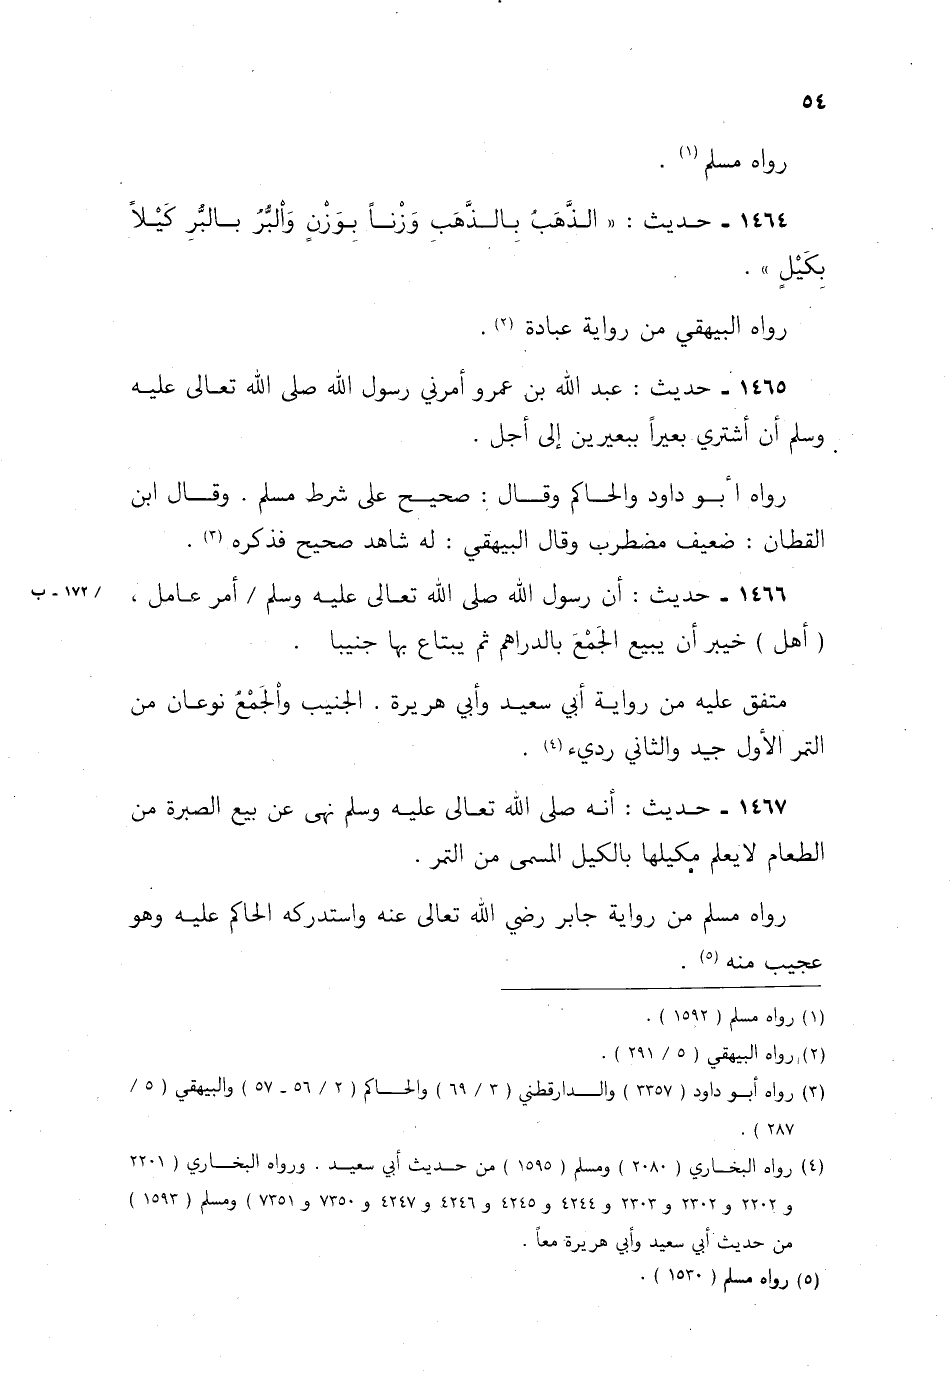 ٥٤
رواه مسلم (١) .
١٤٦٤ - حديث : « الذَّهَبُ بِالذَّهَبِ وَزْناً بِوَزْنٍ وَالْبُرُّ بِالبُّرِ كَيْلاً
بِكَيْلٍ » .
رواه البيهقي من رواية عبادة (٢) .
١٤٦٥ - حديث : عبد الله بن عمرو أمرني رسول الله صلى الله تعالى عليه
وسلم أن أشتري بعيراً ببعيرين إلى أجل .
رواه أبو داود والحاكم وقال : صحيح على شرط مسلم . وقال ابن
القطان : ضعيف مضطرب وقال البيهقي : له شاهد صحيح فذكره (٣) .
١٤٦٦ - حديث : أن رسول الله صلى الله تعالى عليه وسلم / أمر عامل ، / ١٧٢ - ب
( أهل ) خيبر أن يبيع الجَمْعَ بالدراهم ثم يبتاع بها جنيبا .
متفق عليه من رواية أبي سعيد وأبي هريرة . الجنيب وأَلجَمْعُ نوعان من
التمر الأول جيد والثاني رديء (٤) .
١٤٦٧ - حديث : أنه صلى الله تعالى عليه وسلم نهى عن بيع الصبرة من
الطعام لا يعلم مكيلها بالكيل المسمى من التمر .
رواه مسلم من رواية جابر رضي الله تعالى عنه واستدركه الحاكم عليه وهو
عجيب منه (٥) .
(١) رواه مسلم ( ١٥٩٢ ) .
(٢) رواه البيهقي ( ٥ / ٢٩١ ) .
(٣) رواه أبو داود ( ٣٣٥٧ ) والدارقطني ( ٣ / ٦٩ ) والحاكم ( ٢ / ٥٦ - ٥٧ ) والبيهقي ( ٥ /
٢٨٧ ) .
(٤) رواه البخاري ( ٢٠٨٠ ) ومسلم ( ١٥٩٥ ) من حديث أبي سعيد . ورواه البخاري ( ٢٢٠١
و ٢٢٠٢ و ٢٣٠٢ و ٢٣٠٣ و ٤٢٤٤ و ٤٢٤٥ و ٤٢٤٦ و ٤٢٤٧ و ٧٣٥٠ و ٧٣٥١ ) ومسلم ( ١٥٩٣ )
من حديث أبي سعيد وأبي هريرة معاً .
(٥) رواه مسلم ( ١٥٣٠ ) .